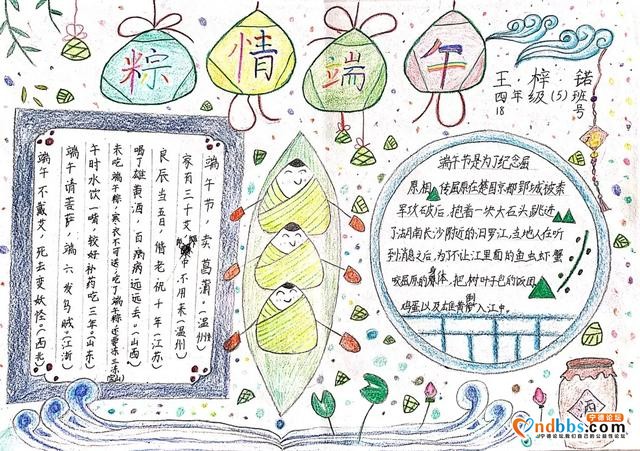 粽情端午
王梓锘
四年级(5)班
18号
端午节，卖葛滑（温州）
家有三十艾，郎中不用来（温州）
良辰当五日，偕老祝千年（江苏）
喝了雄黄酒，百病远远去。（山西）
未吃端午粽，寒衣不可送，吃了端午粽，还要冻三冻
午时水饮一嘴，较好补药吃三年（山东）
端午请菩萨，端六发乌贼。（江浙）
端午不戴艾，死去变妖怪。（西北）
端午节是为了纪念屈
原相传屈原在楚国京都郢城被秦
军攻破后，抱着一块大石头跳进
了湖南长沙附近的汨罗江，当地人在听
到消息之后，为了不让江里面的鱼虫虾蟹
咬屈原的身体，把树叶子包的饭团
鸡蛋以及雄黄倒入江中。
酒
ndbbs.com
宁德论坛